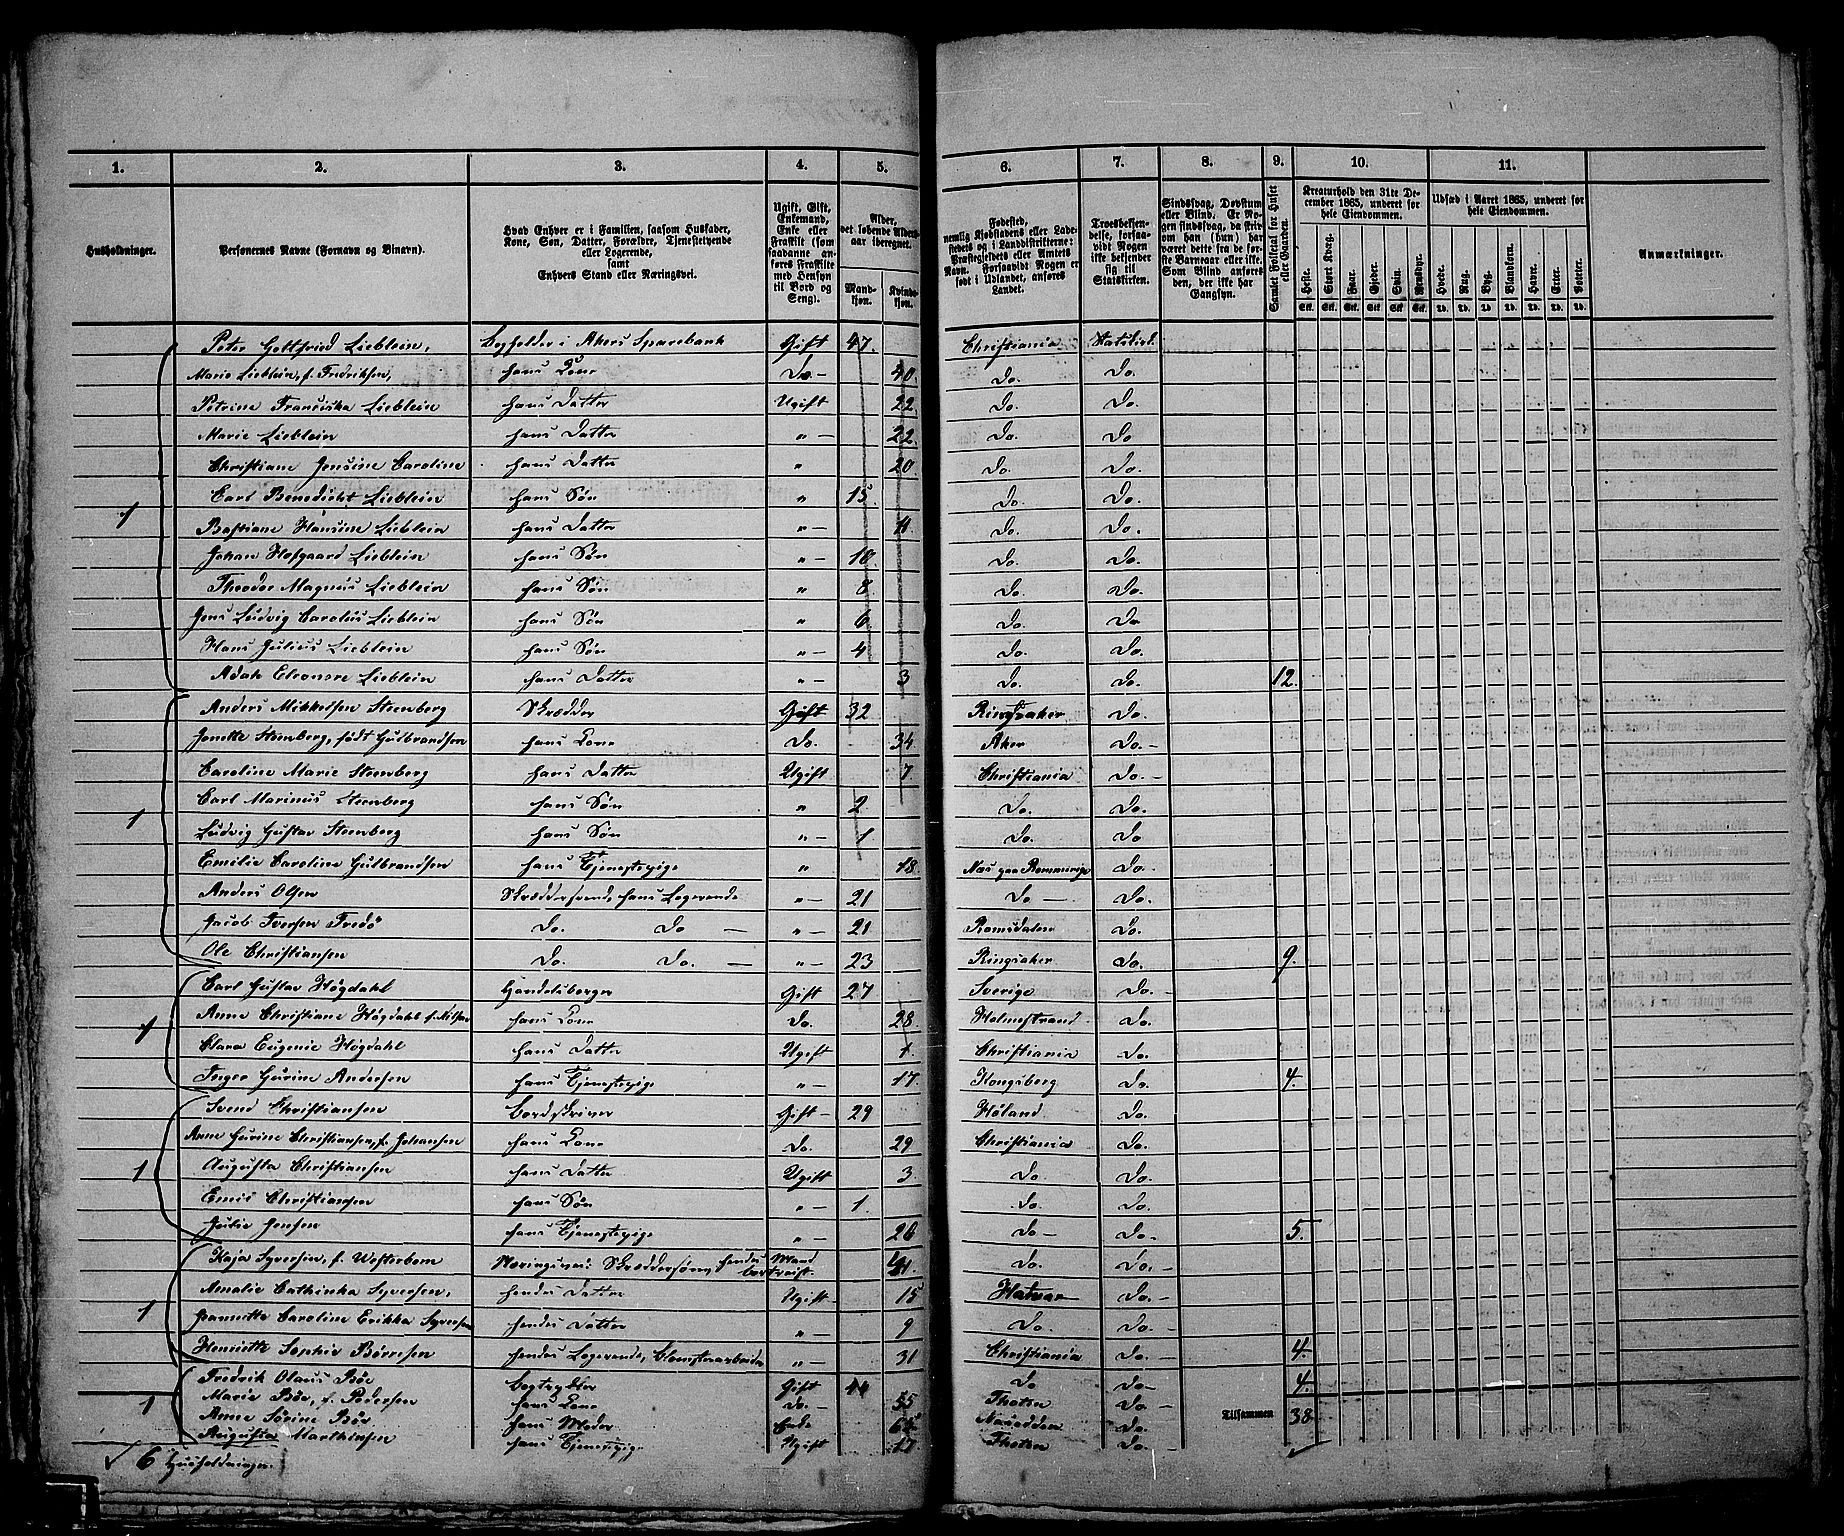 1. 2. 3. 4. 5. 6. 7. 8. 9. 10. 11.
Husholdninger.
Personernes Navne (Fornavn og Binavn).
Hvad Enhver er i Familien, saasom Husfader, Kone, Søn, Datter, Forældre, Tjenestetyende eller Logerende, samt Enhvers Stand eller Næringsvei.
Ugift, Gift, Enkemand, Enke eller Fraskilt (som saadanne anføres Fraskilte med Hensyn til Bord og Seng).
Alder, det løbende Aldersaar iberegnet.
Mandkjøn. Kvindekjøn.
Fødested, nemlig Kjøbstadens eller Ladestedets og i Landdistrikterne: Præstegjeldets eller Amtets Navn. Forsaavidt Nogen er født i Udlandet, anføres Landet.
Troesbekjendelse, forsaavidt Nogen ikke bekjender sig til Statskirken.
Sindssvag, Døvstum eller Blind. Er Nogen sindssvag, da skriv om han (hun) har været dette fra de første Barneaar eller ikke. Som Blind anføres den, der ikke har Gangsyn.
Samlet Folketal for Huset eller Gaarden.
Kreaturhold den 31te December 1865, underet for hele Eiendommen.
Heste. Stort Kvæg. Faar. Gjeder. Svin. Rensdyr.
Udsæd i Aaret 1865, underet for hele Eiendommen.
Hvede. Rug. Byg. Blandkorn. Havre. Erter. Poteter.
Anmærkninger.
Peter Gottfried Lieblein, Bogholder i Akers Sparebank Gift 47. Christiania Statskirk.
Marie Lieblein, f. Fredriksen, hans Kone Do. 40. Do. Do.
Petrine Franciska Lieblein hans Datter Ugift 22. Do. Do.
Marie Lieblein hans Datter " 22 Do. Do
Christiane Jensine Caroline hans Datter " 20 Do. Do.
Carl Benedikt Lieblein hans Søn " 15. Do. Do.
1 Bastiane Hansine Lieblein hans Datter " 11. Do. Do.
Johan Hofgaard Lieblein hans Søn " 10. Do. Do.
Theodor Magnus Lieblein hans Søn " 8 Do. Do.
Jens Ludvig Carolus Lieblein hans Søn " 6 Do. Do
Hans Julius Lieblein hans Søn " 4 Do. Do.
Adah Eleonore Lieblein hans Datter " 3 Do. Do. 12.
Anders Mikkelsen Steenberg Skrædder Gift 32 Ringsaker Do.
Jonette Steenberg, født Gulbrandsen hans Kone Do. 34 Aker Do.
Caroline Marie Steenberg hans Datter Ugift 7 Christiania Do.
1 Carl Marinus Steenberg hans Søn " 2 Do. Do.
Ludvig Gustav Steenberg hans Søn " 1. Do. Do
Emilie Caroline Gulbrandsen hans Tjenestepige " 18. Næs paa Rommerige Do.
Anders Olsen Skræddersvend, hans Logerende " 21 Do Do.
Jacob Iversen Fredø Do. Do " 21 Romsdalen Do.
Ole Christiansen Do. Do. " 23 Ringsaker Do. 9.
Carl Gustav Högdahl Handelsborger Gift 27 Sverige Do.
1 Anne Christiane Högdahl f. Nilsen hans Kone Do. 28. Holmestrand Do.
Clara Eugenie Högdahl hans Datter Ugift 1. Christiania Do.
Inger Gurine Andersen hans Tjenestepige " 17. Kongsberg Do. 4.
Svend Christiansen Gift 29 Høland Do.
Anne Gurine Christiansen, f. Johansen hans Kone Do. 29 Christiania Do.
1 Augusta Christiansen hans Datter Ugift 3 Do. Do.
Emil Christiansen hans Søn " 1. Do. Do
Julie Jensen hans Tjenestepige " 26 Do Do. 5.
Kaja Syversen, f. Westerbom Næringsvei Skræddersøm, hendes Mand bortreist. 41. Do. Do.
Amalie Cathinka Syversen, hendes Datter Ugift 15 Do.
1 Jeannette Caroline Erikka Syversen hendes Datter " 9 Do. Do.
Henriette Sophie Børresen hendes Logerende, Blomsterarbeider " 31 Christiania Do. 4.
Fredrik Olaus Böe Bogtrykker Gift 44 Do Do 4.
1 Marie Böe, f. Pedersen hans Kone Do. 55 Thoten Do.
Anne Sörine Böe hans Moder Enke Do.
Augusta Marthinsen hans Tjenestepige Ugift 17 Thoten Do.
Tilsammen 38
6 Husholdninger.